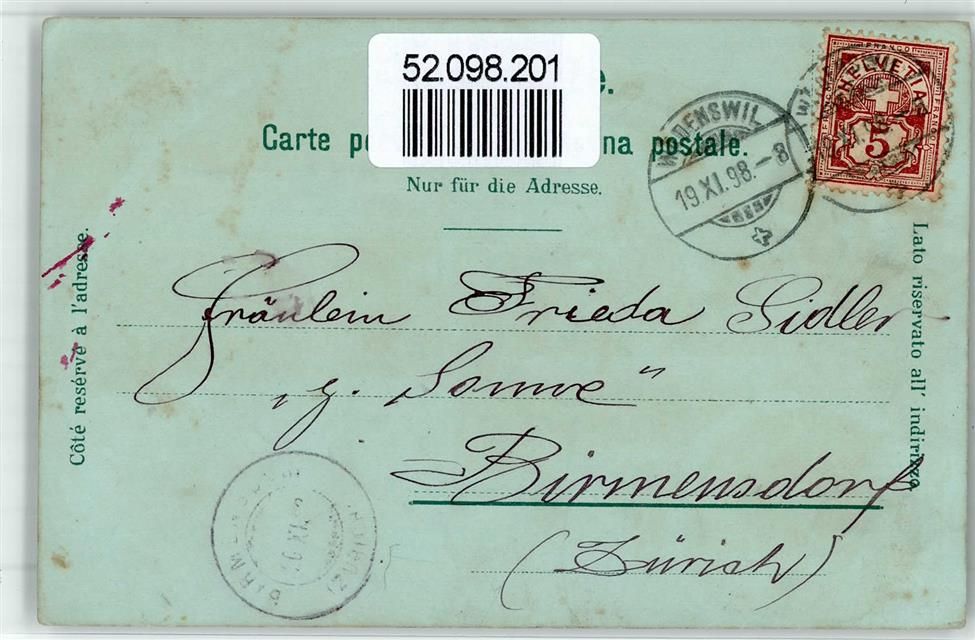 52.098.201
Carte po na postale.
Nur für die Adresse.
WÄDENSWIL
19.XI.98.-8
FRANCO
HELVETIA
5
Côté resérvé à l'adresse.
Lato riservato all' indirizzo
Fräulein Frieda Sidler
„z. Sonne"
Birmensdorf
(Zürich)
BIRMENSDORF (ZÜRICH)
XI.